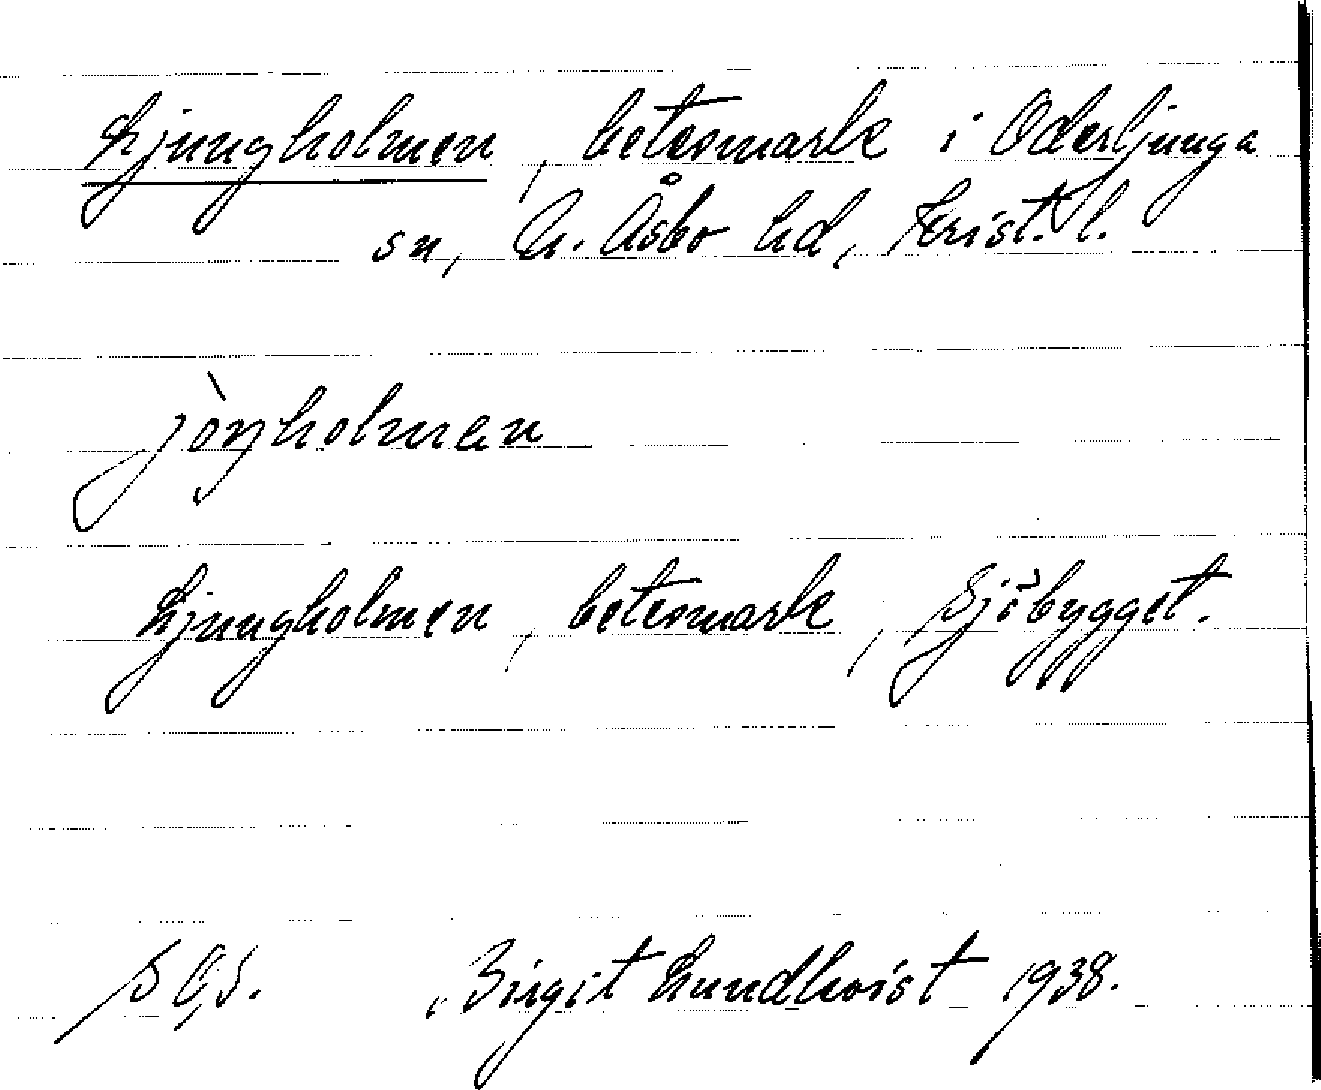 Ljungholmen, betesmark i Oderljunga
sn, N. Åsbo hd, Krist. l.
jòŋholmen
Ljungholmen, betesmark, Sjöbygget.
Birgit Lundkvist 1938.